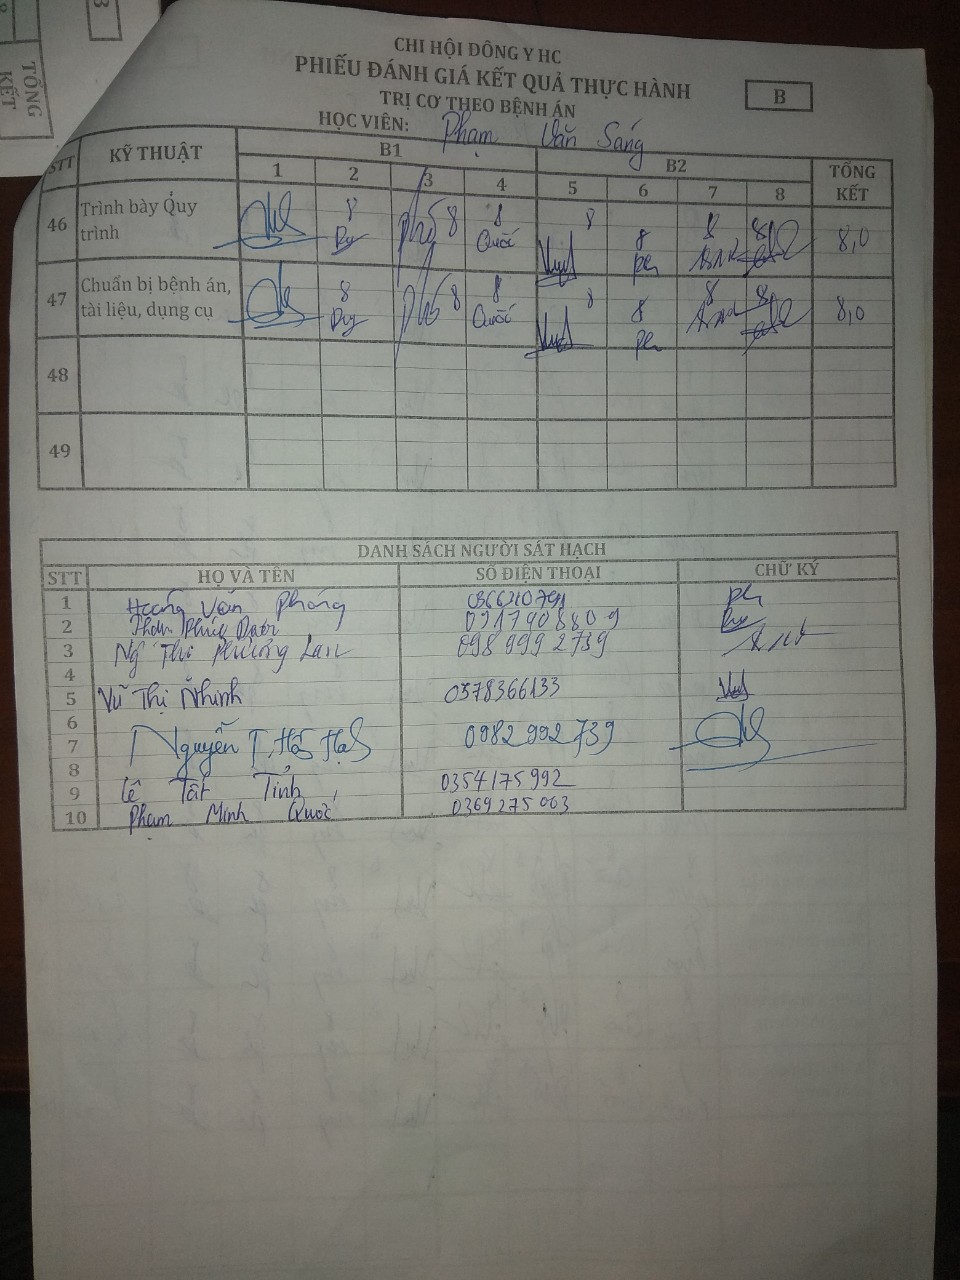 B
TỔNG
KẾT
CHI HỘI ĐÔNG Y HC
PHIẾU ĐÁNH GIÁ KẾT QUẢ THỰC HÀNH
B
TRỊ CƠ THEO BỆNH ÁN
HỌC VIÊN: Phạm Văn Sáng
STT KỸ THUẬT B1 B2 TỔNG KẾT
1 2 3 4 5 6 7 8
46 Trình bày Quy trình 8 Duy 8 8 Quốc 8 8 8 8 8,0
47 Chuẩn bị bệnh án, tài liệu, dụng cụ 8 Duy 8 8 Quốc 8 8 8 8 8,0
48
49
DANH SÁCH NGƯỜI SÁT HẠCH
STT HỌ VÀ TÊN SỐ ĐIỆN THOẠI CHỮ KÝ
1 Văn Phóng
2
3 Thị Phương Lan 098 999 2739
4
5 Vũ Thị Nhinh 0378366133
6
7 Nguyễn T. 0982 992 739
8
9 Lê Tất Tỉnh 0354175992
10 Phạm Minh Quốc 0369275003